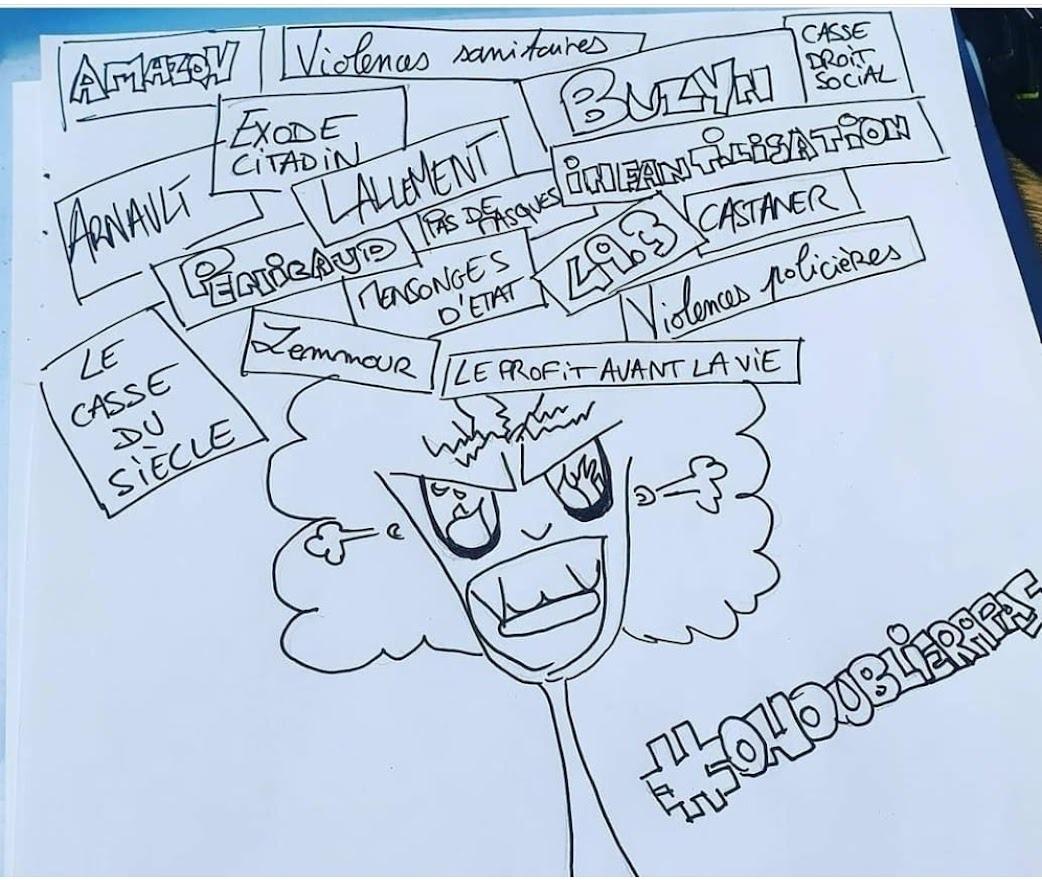 AMAZON
Violences sanitaires
BUZYN
CASSE
DROIT
SOCIAL
EXODE
CITADIN
LALLEMENT
iNFANTiLiSATiON
ARNAULT
PAS DE
MASQUES
CASTANER
PENICAUD
MENSONGES
D'ETAT
49.3
Violences policières
LE
CASSE
DU
SIÈCLE
Zemmour
LE PROFiT AVANT LA ViE
#ONOUBLiERAPAS